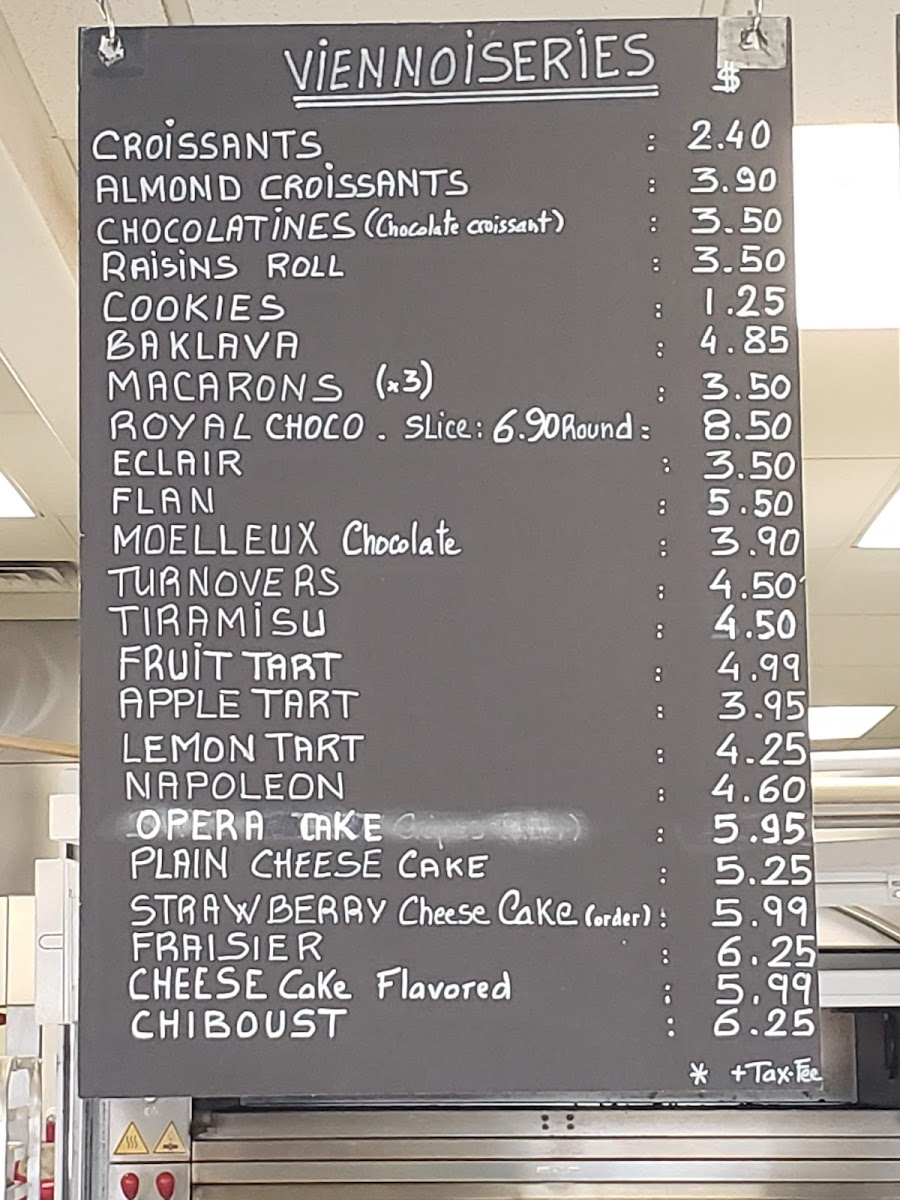 VIENNOISERIES $
CROISSANTS : 2.40
ALMOND CROISSANTS : 3.90
CHOCOLATINES (Chocolate croissant) : 3.50
RAISINS ROLL : 3.50
COOKIES : 1.25
BAKLAVA : 4.85
MACARONS (x3) : 3.50
ROYAL CHOCO . SLice: 6.90 Round : 8.50
ECLAIR : 3.50
FLAN : 5.50
MOELLEUX Chocolate : 3.90
TURNOVERS : 4.50
TIRAMISU : 4.50
FRUIT TART : 4.99
APPLE TART : 3.95
LEMON TART : 4.25
NAPOLEON : 4.60
OPERA CAKE : 5.95
PLAIN CHEESE CAKE : 5.25
STRAWBERRY Cheese Cake (order) : 5.99
FRAISIER : 6.25
CHEESE Cake Flavored : 5.99
CHIBOUST : 6.25
* +Tax.Fee